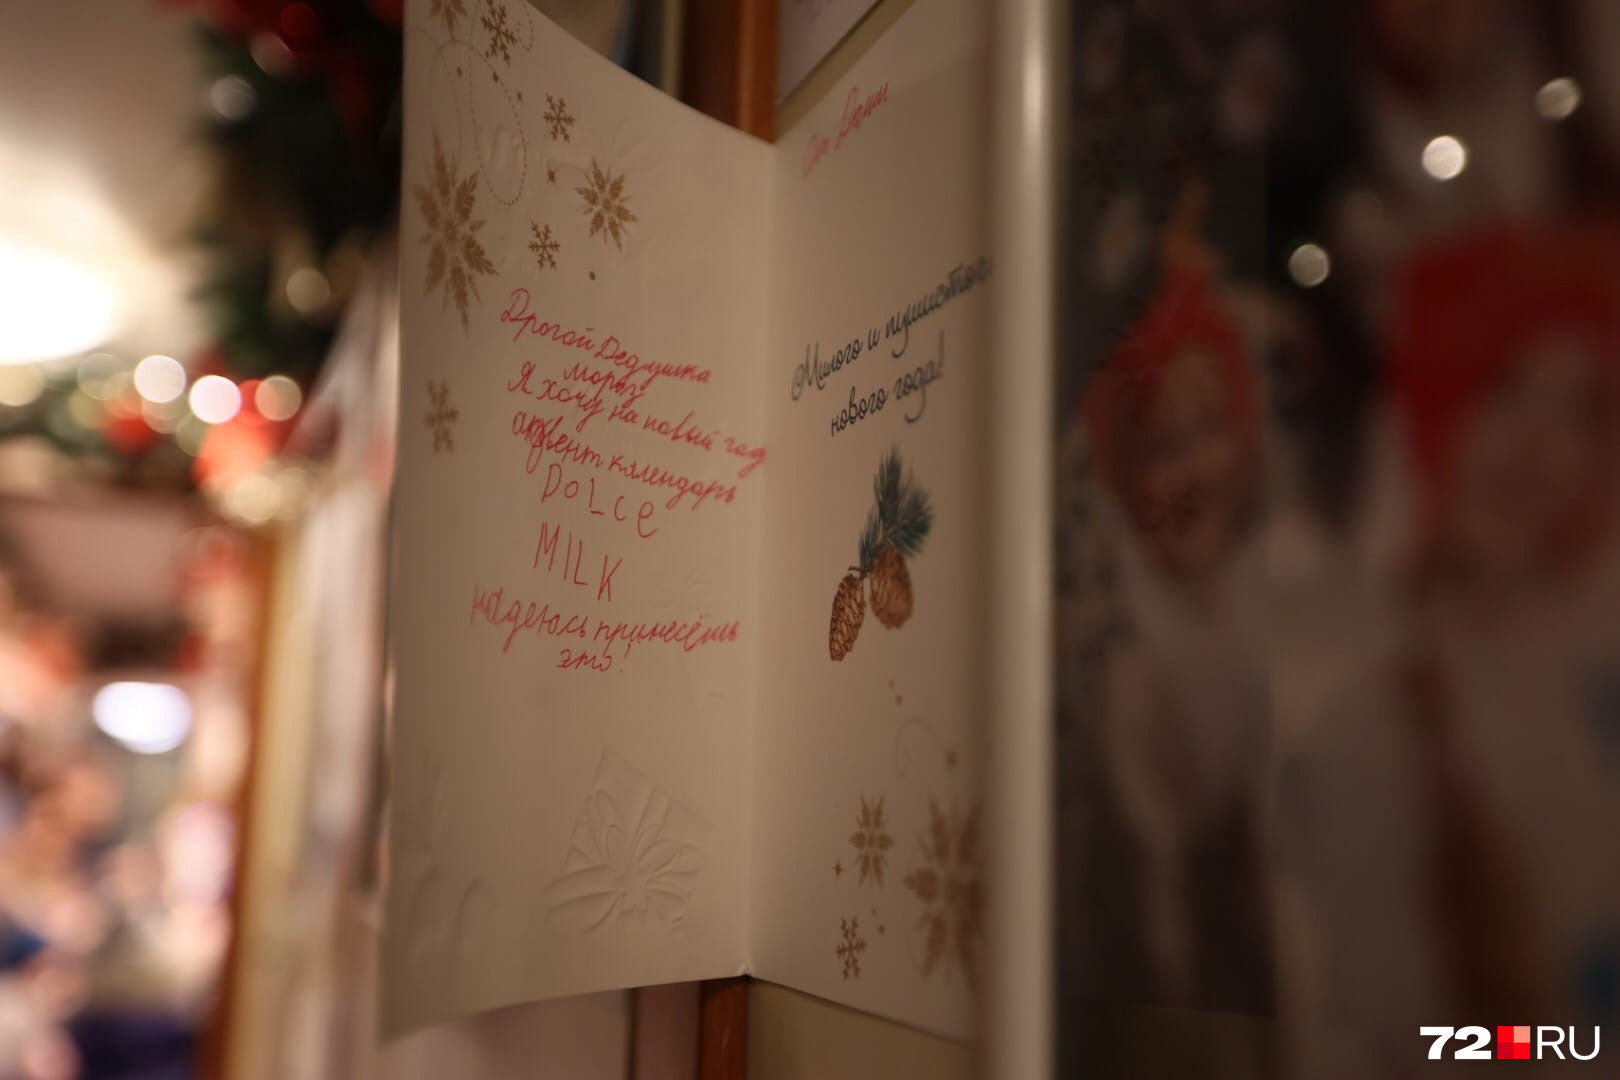 Дрогой Дедушка
мороз
Я хочу на новый год
адвент календарь
DOLCE
MILK
надеюсь принесёшь
это!
От Даши
Милого и пушистого
нового года!
72 RU